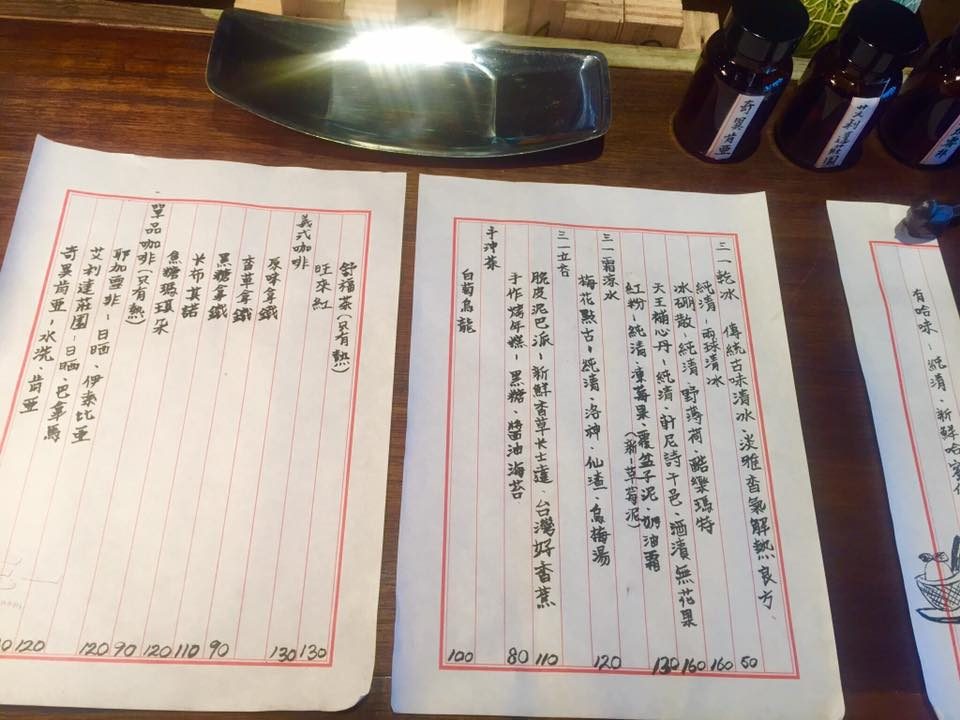 有哈味-純清、新鮮哈蜜
三一乾冰 傳統古味清冰、淡雅香氣解熱良方
純清-兩球清冰
冰硼散-純清、野薄荷、酷樂瑪特
天王補心丹-純清、軒尼詩干邑、酒漬無花果
紅粉-純清、凍莓果、覆盆子泥、奶油霜
(新-草莓泥)
三一霜涼水
梅花點古-純清、洛神、仙渣、烏梅湯
三一立
脆皮泥巴派-新鮮香草卡士達、台灣好香蕉
手作烤年糕-黑糖、醬油海苔
手沖茶
白菊烏龍
50 160 160 130 120 110 80 100
舒福茶(只有熱)
旺來紅
義式咖啡
原味拿鐵
香草拿鐵
黑糖拿鐵
卡布其諾
焦糖瑪琪朵
單品咖啡(只有熱)
耶加雪菲-日晒、伊索比亞
艾利達莊園-日晒、巴拿馬
奇異肯亞-水洗、肯亞
130 130 90 110 120 90 120 120
奇異肯亞
艾利達莊園